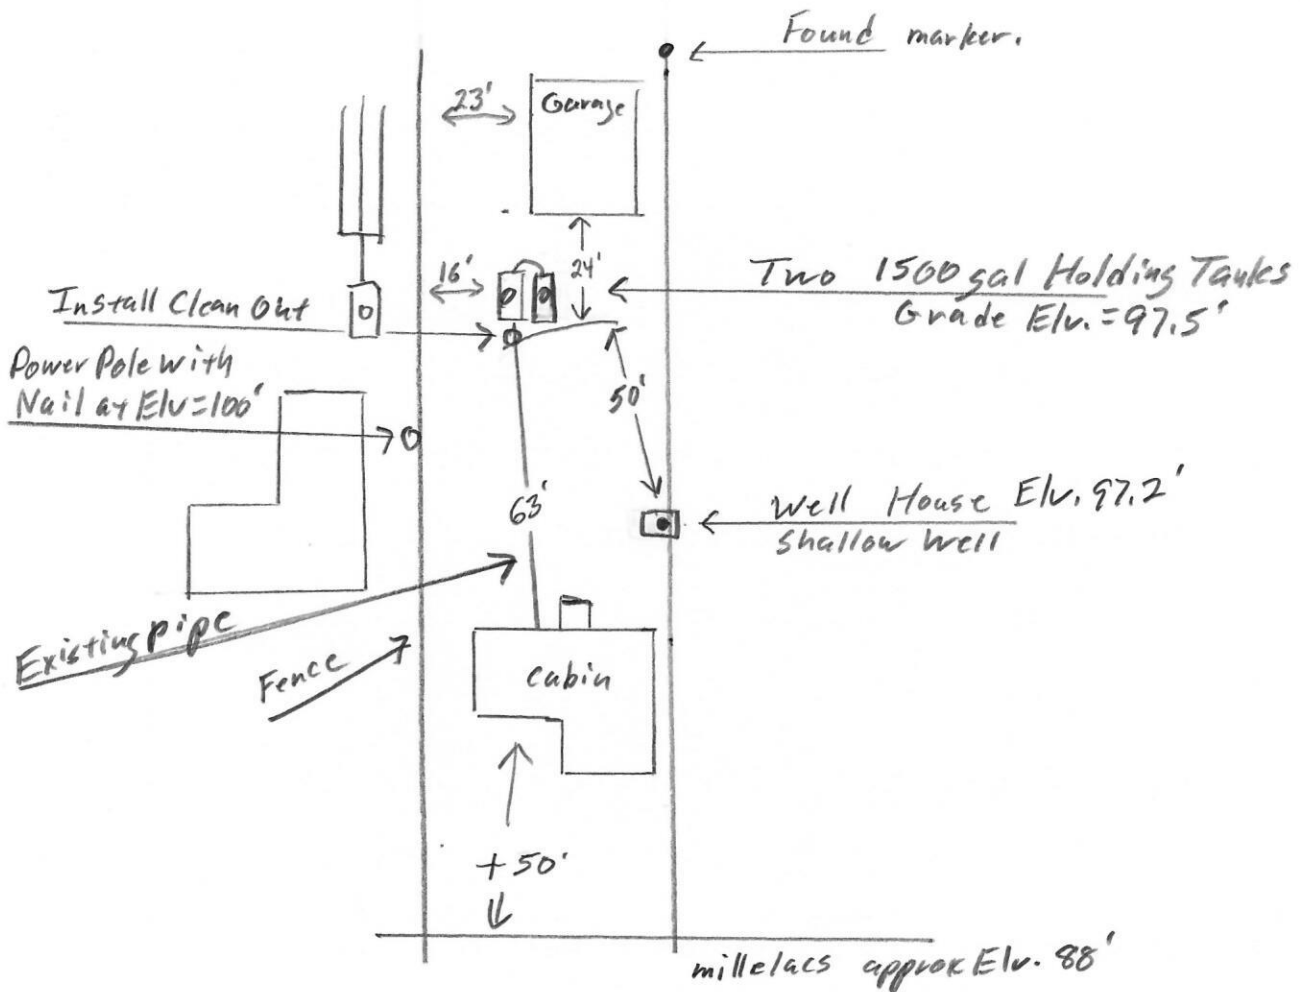 Found marker.
23'
Garage
16'
24'
Two 1500 gal Holding Tanks
Grade Elv. = 97.5'
Install Clean Out
Power Pole with
Nail at Elv=100'
50'
63'
Well House Elv. 97.2'
Shallow Well
Existing pipe
Fence
Cabin
+50'
millelacs approx Elv. 88'